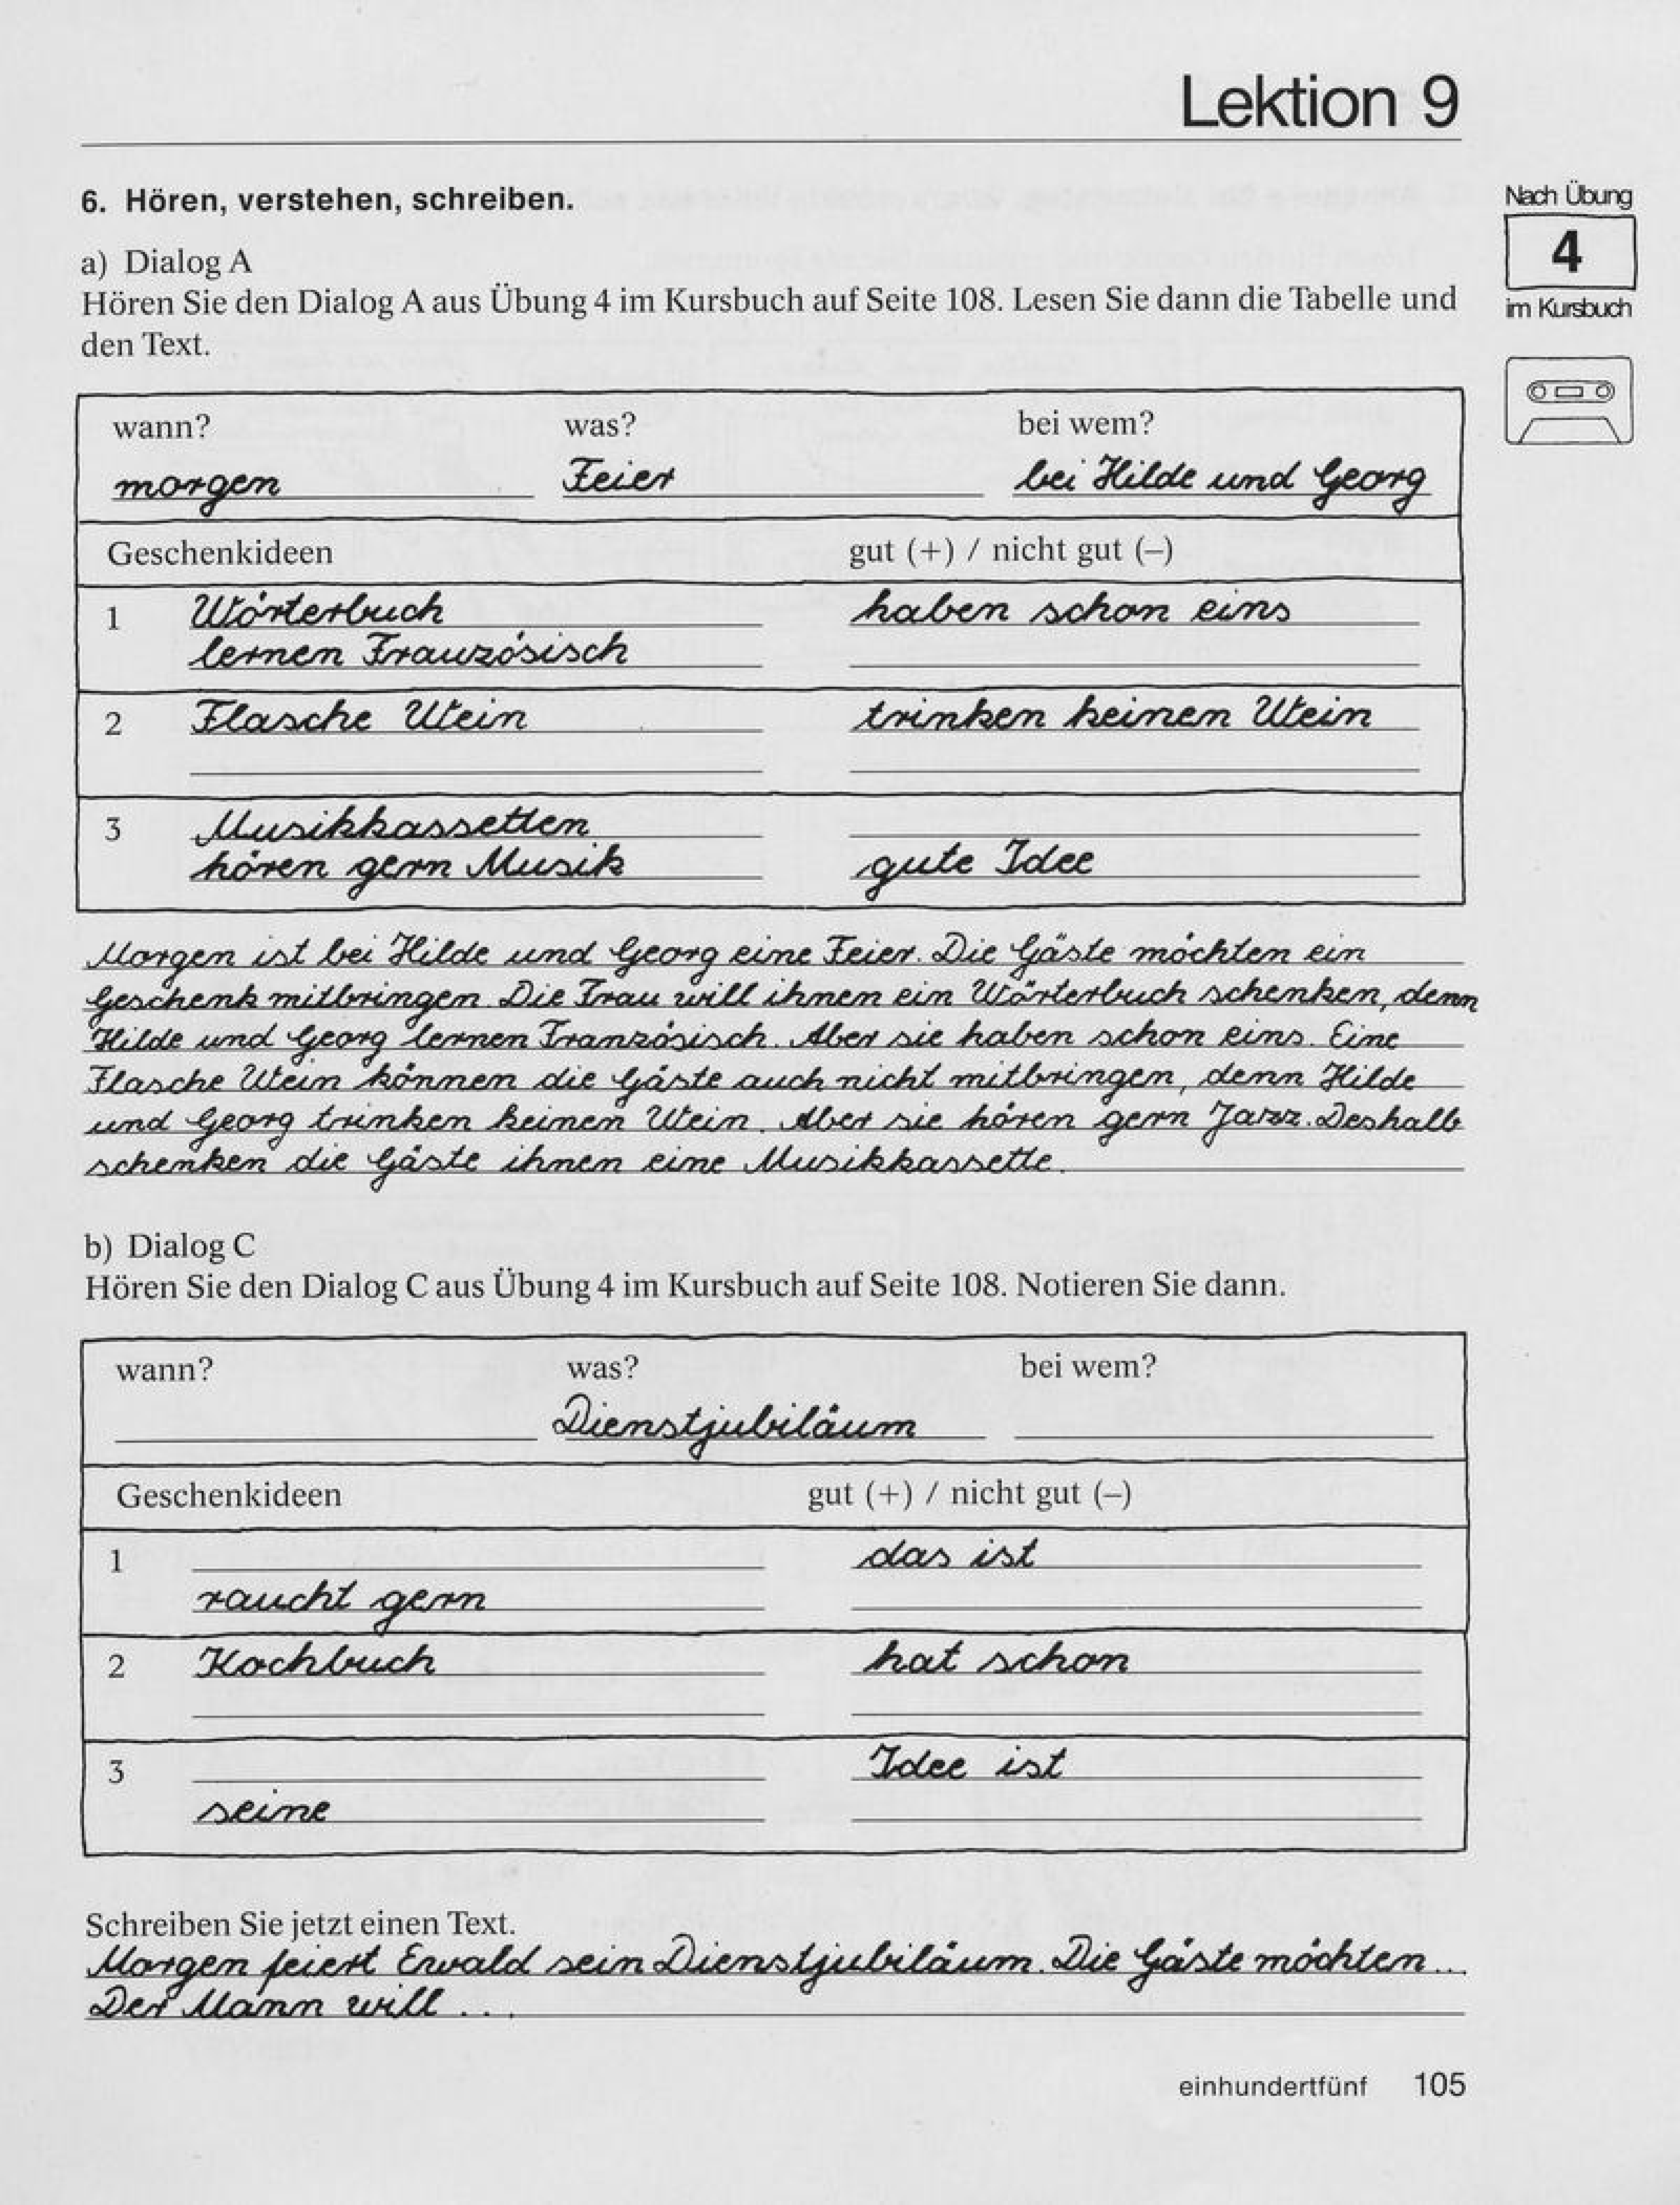 Lektion 9
6. Hören, verstehen, schreiben.
Nach Übung
4
im Kursbuch
a) Dialog A
Hören Sie den Dialog A aus Übung 4 im Kursbuch auf Seite 108. Lesen Sie dann die Tabelle und
den Text.
wann? was? bei wem?
morgen Feier bei Hilde und Georg
Geschenkideen gut (+) / nicht gut (–)
1 Wörterbuch haben schon eins
lernen Französisch
2 Flasche Wein trinken keinen Wein
3 Musikkassetten
hören gern Musik gute Idee
Morgen ist bei Hilde und Georg eine Feier. Die Gäste möchten ein
Geschenk mitbringen. Die Frau will ihnen ein Wörterbuch schenken, denn
Hilde und Georg lernen Französisch. Aber sie haben schon eins. Eine
Flasche Wein können die Gäste auch nicht mitbringen, denn Hilde
und Georg trinken keinen Wein. Aber sie hören gern Jazz. Deshalb
schenken die Gäste ihnen eine Musikkassette.
b) Dialog C
Hören Sie den Dialog C aus Übung 4 im Kursbuch auf Seite 108. Notieren Sie dann.
wann? was? bei wem?
Dienstjubiläum
Geschenkideen gut (+) / nicht gut (–)
1 das ist
raucht gern
2 Kochbuch hat schon
3 Idee ist
seine
Schreiben Sie jetzt einen Text.
Morgen feiert Ewald sein Dienstjubiläum. Die Gäste möchten...
Der Mann will ...
einhundertfünf 105